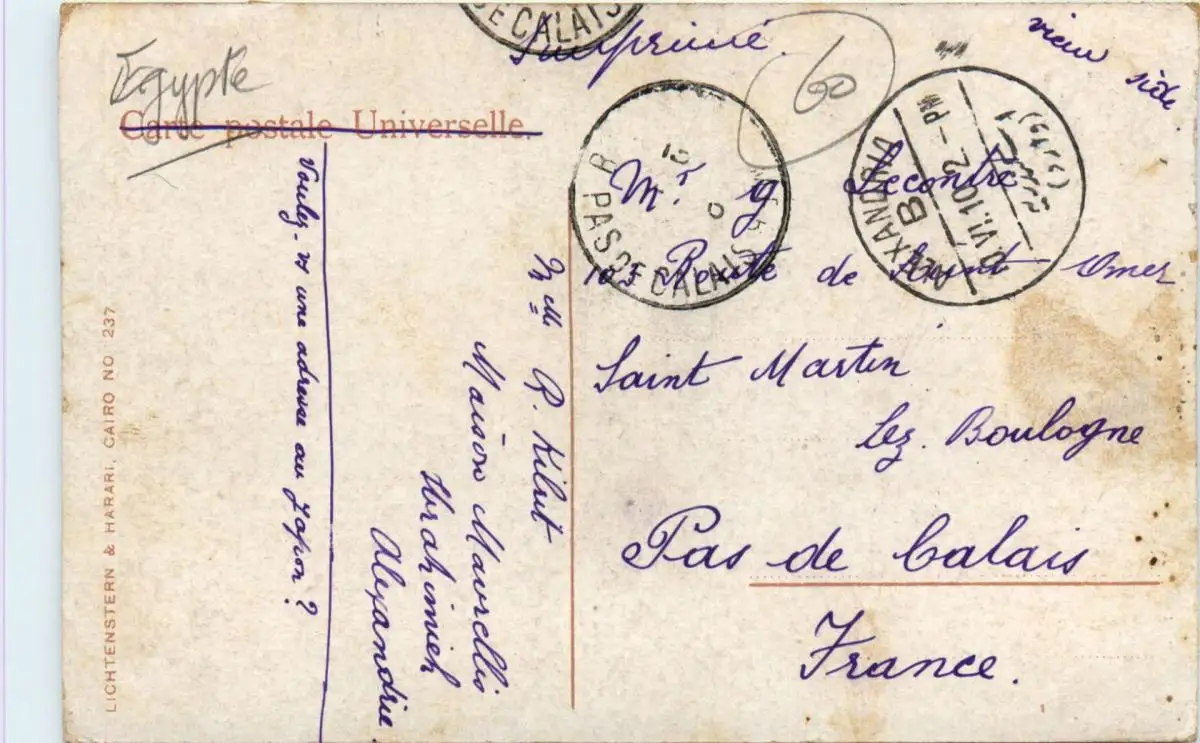 DE CALAIS
Imprimé.
view side
Egypte
60
Carte postale Universelle.
PAS DE CALAIS
ALEXANDRIA
B
VI.10 2-PM
Mr G Lecontre
103 Route de Saint Omer
Saint Martin
Lez. Boulogne
Pas de Calais
France.
Mlle R. Kilut
Maison Maurellio
Ibrahimieh
Alexandrie
Voulez-vs une adresse au Japon?
LICHTENSTERN & HARARI, CAIRO NO 237